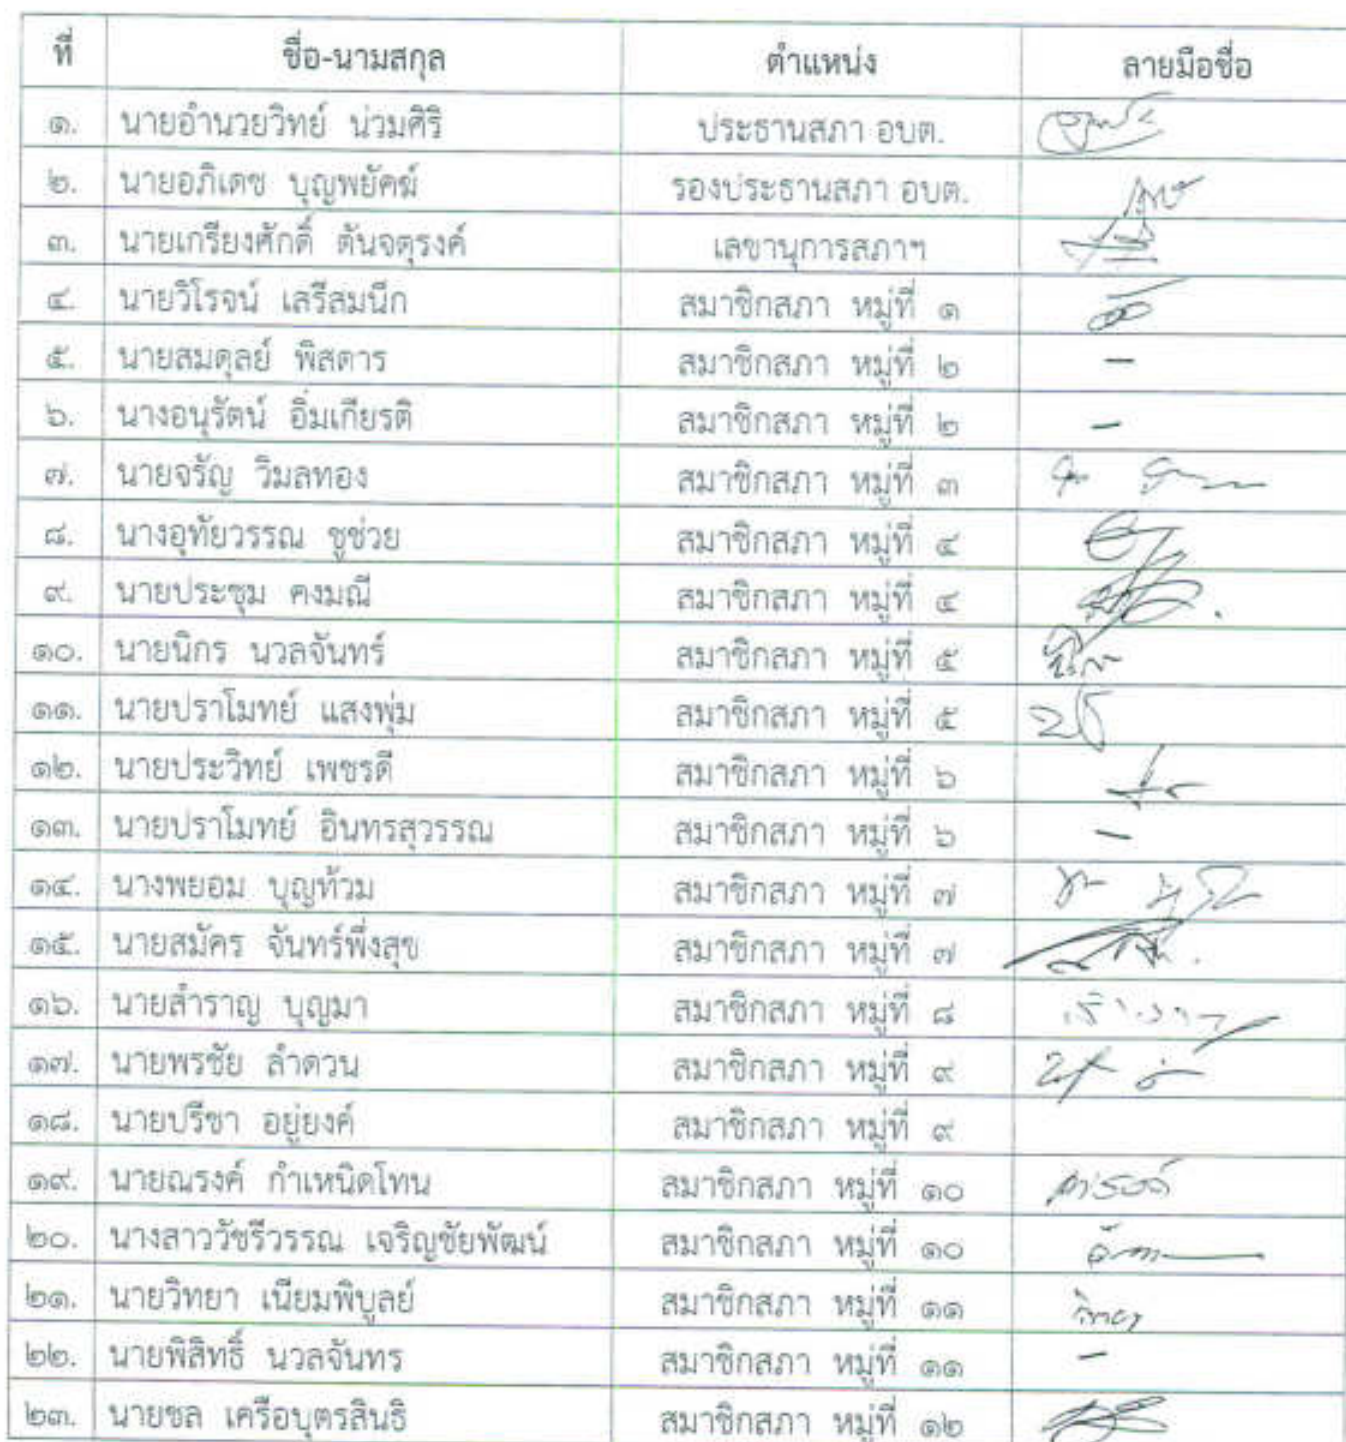 ที่ ชื่อ-นามสกุล ตำแหน่ง ลายมือชื่อ
๑. นายอำนวยวิทย์ น่วมศิริ ประธานสภา อบต.
๒. นายอภิเดช บุญพยัคฆ์ รองประธานสภา อบต.
๓. นายเกรียงศักดิ์ ตันจตุรงค์ เลขานุการสภาฯ
๔. นายวิโรจน์ เสรีสมนึก สมาชิกสภา หมู่ที่ ๑
๕. นายสมดุลย์ พิสดาร สมาชิกสภา หมู่ที่ ๒ –
๖. นางอนุรัตน์ อิ่มเกียรติ สมาชิกสภา หมู่ที่ ๒ –
๗. นายจรัญ วิมลทอง สมาชิกสภา หมู่ที่ ๓
๘. นางอุทัยวรรณ ชูช่วย สมาชิกสภา หมู่ที่ ๔
๙. นายประชุม คงมณี สมาชิกสภา หมู่ที่ ๔
๑๐. นายนิกร นวลจันทร์ สมาชิกสภา หมู่ที่ ๕
๑๑. นายปราโมทย์ แสงพุ่ม สมาชิกสภา หมู่ที่ ๕
๑๒. นายประวิทย์ เพชรดี สมาชิกสภา หมู่ที่ ๖
๑๓. นายปราโมทย์ อินทรสุวรรณ สมาชิกสภา หมู่ที่ ๖ –
๑๔. นางพยอม บุญท้วม สมาชิกสภา หมู่ที่ ๗
๑๕. นายสมัคร จันทร์พึ่งสุข สมาชิกสภา หมู่ที่ ๗
๑๖. นายสำราญ บุญมา สมาชิกสภา หมู่ที่ ๘
๑๗. นายพรชัย ลำดวน สมาชิกสภา หมู่ที่ ๙
๑๘. นายปรีชา อยู่ยงค์ สมาชิกสภา หมู่ที่ ๙
๑๙. นายณรงค์ กำเหนิดโทน สมาชิกสภา หมู่ที่ ๑๐ ณรงค์
๒๐. นางสาววัชรีวรรณ เจริญชัยพัฒน์ สมาชิกสภา หมู่ที่ ๑๐
๒๑. นายวิทยา เนียมพิบูลย์ สมาชิกสภา หมู่ที่ ๑๑ วิทยา
๒๒. นายพิสิทธิ์ นวลจันทร สมาชิกสภา หมู่ที่ ๑๑ –
๒๓. นายชล เครือบุตรสินธิ สมาชิกสภา หมู่ที่ ๑๒